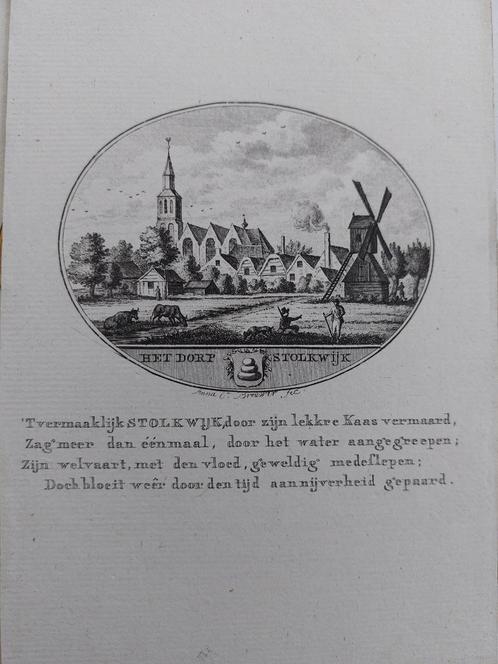 HET DORP STOLKWIJK
Anna C. Brouwer fec.
'T vermaaklijk STOLKWIJK, door zijn lekkre Kaas vermaard,
Zag meer dan éénmaal, door het water aangegreepen;
Zijn welvaart, met den vloed, geweldig medeslepen;
Doch bloeit weêr door den tijd aan nijverheid gepaard.